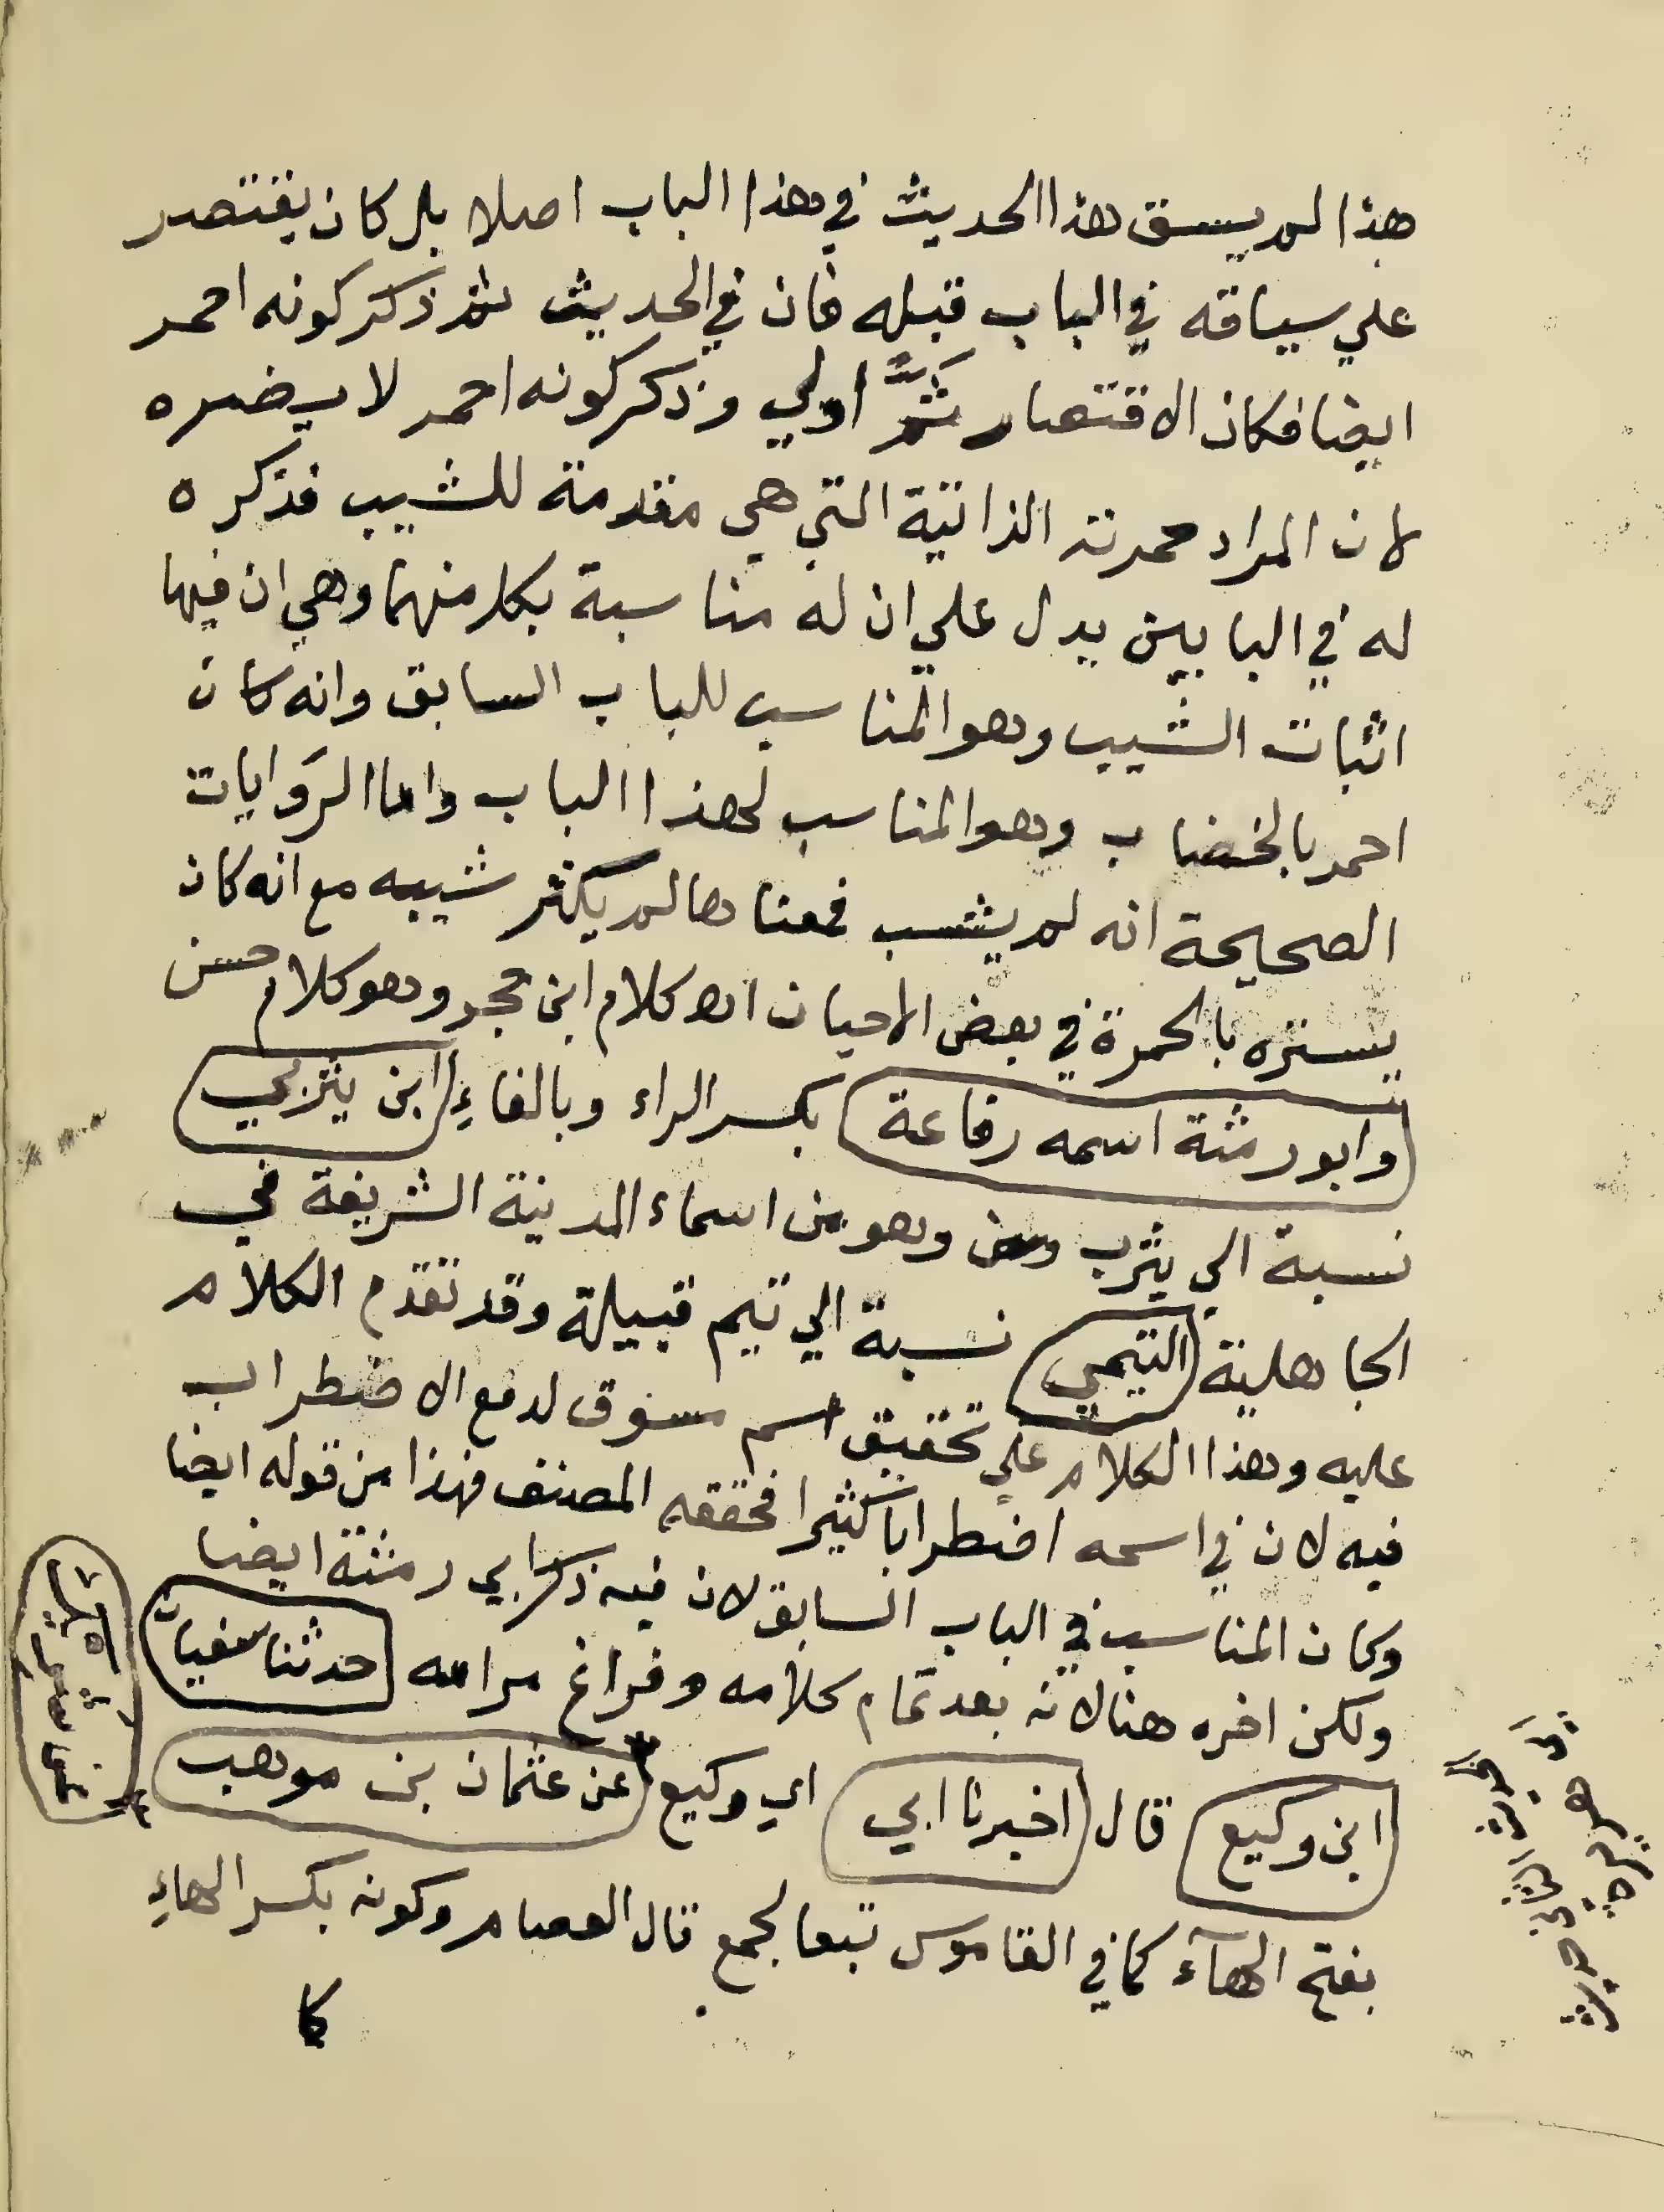 هذا لم يسق هذا الحديث في هذا الباب اصلا بل كان يقتصر
علي سياقه في الباب قبله فان في الحديث ثم ذكر كونه احمر
ايضا فكان الاقتصار ثَمَّ اولي وذكر كونه احمر لا يضره
لان المراد حمرته الذاتية التي هي مقدمة للشيب فذكره
له في البابين يدل علي ان له مناسبة بكل منهما وهي ان فيها
اثبات الشيب وهو المناسب للباب السابق وانه كان
احمر بالخضاب وهو المناسب لهذا الباب واما الروايات
الصحيحة انه لم يشب فمعناها لم يكثر شيبه مع انه كان
يستره بالحمرة في بعض الاحيان اه كلام ابن حجر وهو كلام حسن
وابو رمثة اسمه رفاعة بكسر الراء وبالفاءِ ابن يثربي
نسبة الي يثرب وهو من اسماء المدينة الشريفة في
الجاهلية التيمي نسبة الي تيم قبيلة وقد تقدم الكلام
عليه وهذا الكلام علي تحقيق اسم مسوق لدفع الاضطراب
فيه لان في اسمه اضطرابا كثيرا فحققه المصنف فهذا من قوله ايضا
وكان المناسب في الباب السابق لان فيه ذكر ابي رمثة ايضا
ولكن اخره هنا لانه بعد تمام كلامه وفراغ مرامه حدثنا سفيان
ابن وكيع قال اخبرنا ابي اي وكيع عن عثمان بن موهب
بفتح الهآء كما في القاموس تبعا لجمع قال العصام وكونه بكسر الهاءِ
كا
عن شريك
الحديث الثاني حديث
ابي هريرة